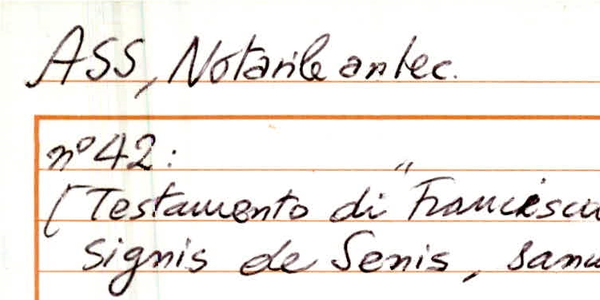 ASS, Notarile antec.
n° 42:
[Testamento di "Franciscu
signis de Senis, sanu